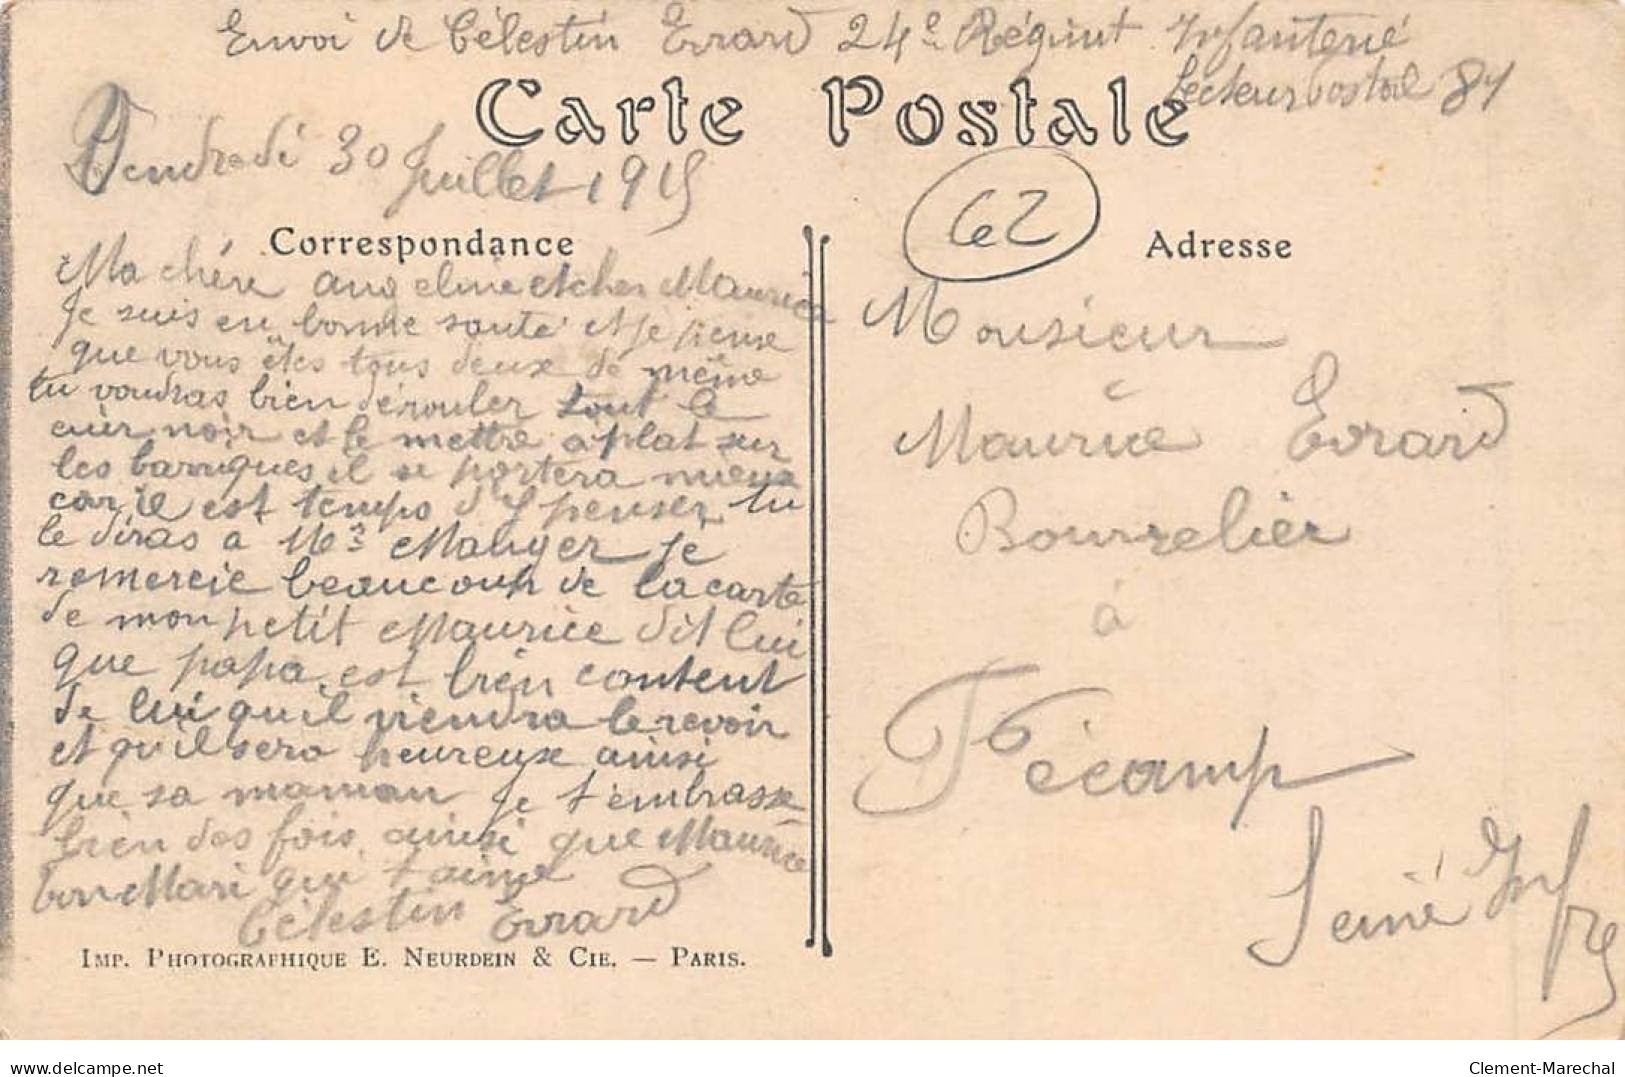 Envoi de Célestin Evrard 24e Régimt Infanterie
Secteur postal 84
Carte Postale
Vendredi 30 Juillet 1915
62
Correspondance
Ma chère angeline et cher Maurice
Je suis en bonne santé et je pense
que vous êtes tous deux de même
tu voudras bien dérouler tout le
cuir noir et le mettre à plat sur
les barriques il se portera mieux
car il est temps d'y penser tu
le diras a Mr Mauger je
remercie beaucoup de la carte
de mon petit Maurice dit lui
que papa est bien content
de lui qu'il viendra le revoir
et qu'il sera heureux ainsi
que sa maman Je t'embrasse
bien des fois ainsi que Maurice
ton Mari qui t'aime
Célestin Evrard
Adresse
Monsieur
Maurice Evrard
Bourrelier
à
Fécamp
Seine Infre
Imp. Photographique E. Neurdein & Cie. — Paris.
delcampe.net
Clement-Marechal